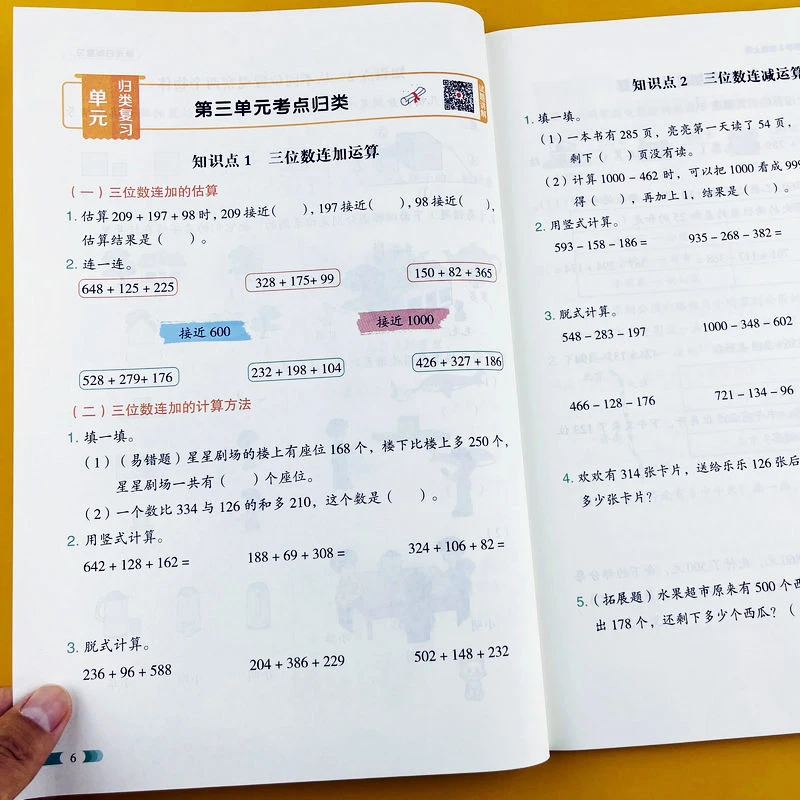 单元
归类复习
第三单元考点归类
知识点 1 三位数连加运算
（一）三位数连加的估算
1. 估算 209 + 197 + 98 时, 209 接近（ ）, 197 接近（ ）, 98 接近（ ）,
估算结果是（ ）。
2. 连一连。
648 + 125 + 225 328 + 175+ 99 150 + 82 + 365
接近 600 接近 1000
528 + 279+ 176 232 + 198 + 104 426 + 327 + 186
（二）三位数连加的计算方法
1. 填一填。
（1）（易错题）星星剧场的楼上有座位 168 个，楼下比楼上多 250 个，
星星剧场一共有（ ）个座位。
（2）一个数比 334 与 126 的和多 210，这个数是（ ）。
2. 用竖式计算。
642 + 128 + 162 = 188 + 69 + 308 = 324 + 106 + 82 =
3. 脱式计算。
236 + 96 + 588 204 + 386 + 229 502 + 148 + 232
6
知识点 2 三位数连减运算
1. 填一填。
（1）一本书有 285 页，亮亮第一天读了 54 页，
剩下（ ）页没有读。
（2）计算 1000 − 462 时，可以把 1000 看成 999
得（ ），再加上 1，结果是（ ）。
2. 用竖式计算。
593 − 158 − 186 = 935 − 268 − 382 =
3. 脱式计算。
548 − 283 − 197 1000 − 348 − 602
466 − 128 − 176 721 − 134 − 96
4. 欢欢有 314 张卡片，送给乐乐 126 张后
多少张卡片？
5.（拓展题）水果超市原来有 500 个西
出 178 个，还剩下多少个西瓜？（